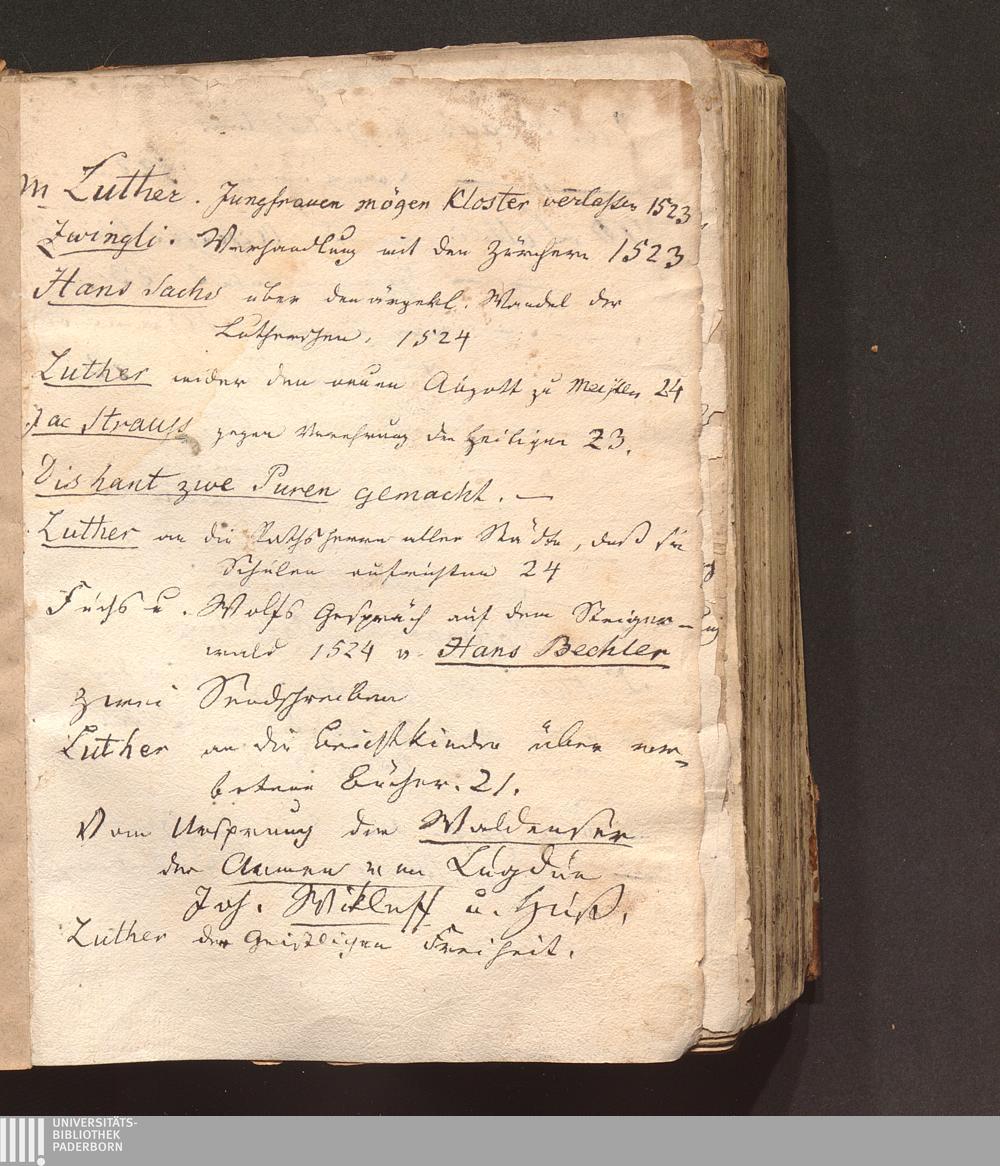 M Luther. Jungfrauen mögen Kloster verlassen 1523.
Zwingli. Verhandlung mit den Zürchern 1523
Hans Sachs über den ärgerl. Wandel der
Lutherschen, 1524
Luther wider den neuen Abgott zu Meißen 24
Jac Strauss gegen Verehrung der Heiligen 23.
Dis hant zwe Puren gemacht. —
Luther an die Rathsherrn aller Städte, daß sie
Schulen aufrichten 24
Fuchs u. Wolfs Gespräch auf dem Steiger-
wald 1524 v. Hans Bechler
Zwei Sendschreiben
Luther an die Beichtkinder über ver-
botene Bücher. 21.
Vom Ursprung der Waldenser
der Armen von Lugdun
Joh. Wikleff u. Huß.
Luther der Geistlichen Freiheit.
UNIVERSITÄTS-
BIBLIOTHEK
PADERBORN